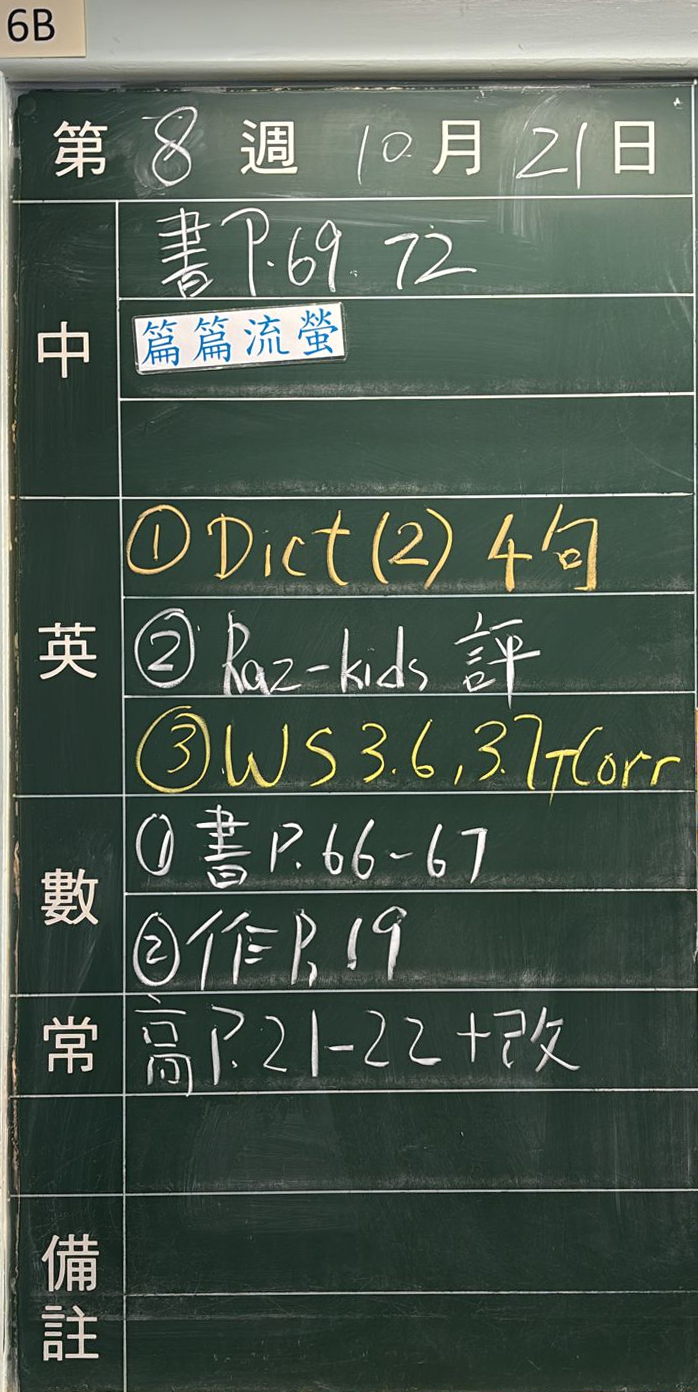 6B
第 8 週 10 月 21 日
中
書 P.69. 72
篇篇流螢
英
① Dict (2) 4句
② Raz-kids 評
③ WS 3.6, 3.7 T Corr
數
① 書 P. 66-67
② 作 P. 19
常
高 P.21-22 +改
備註